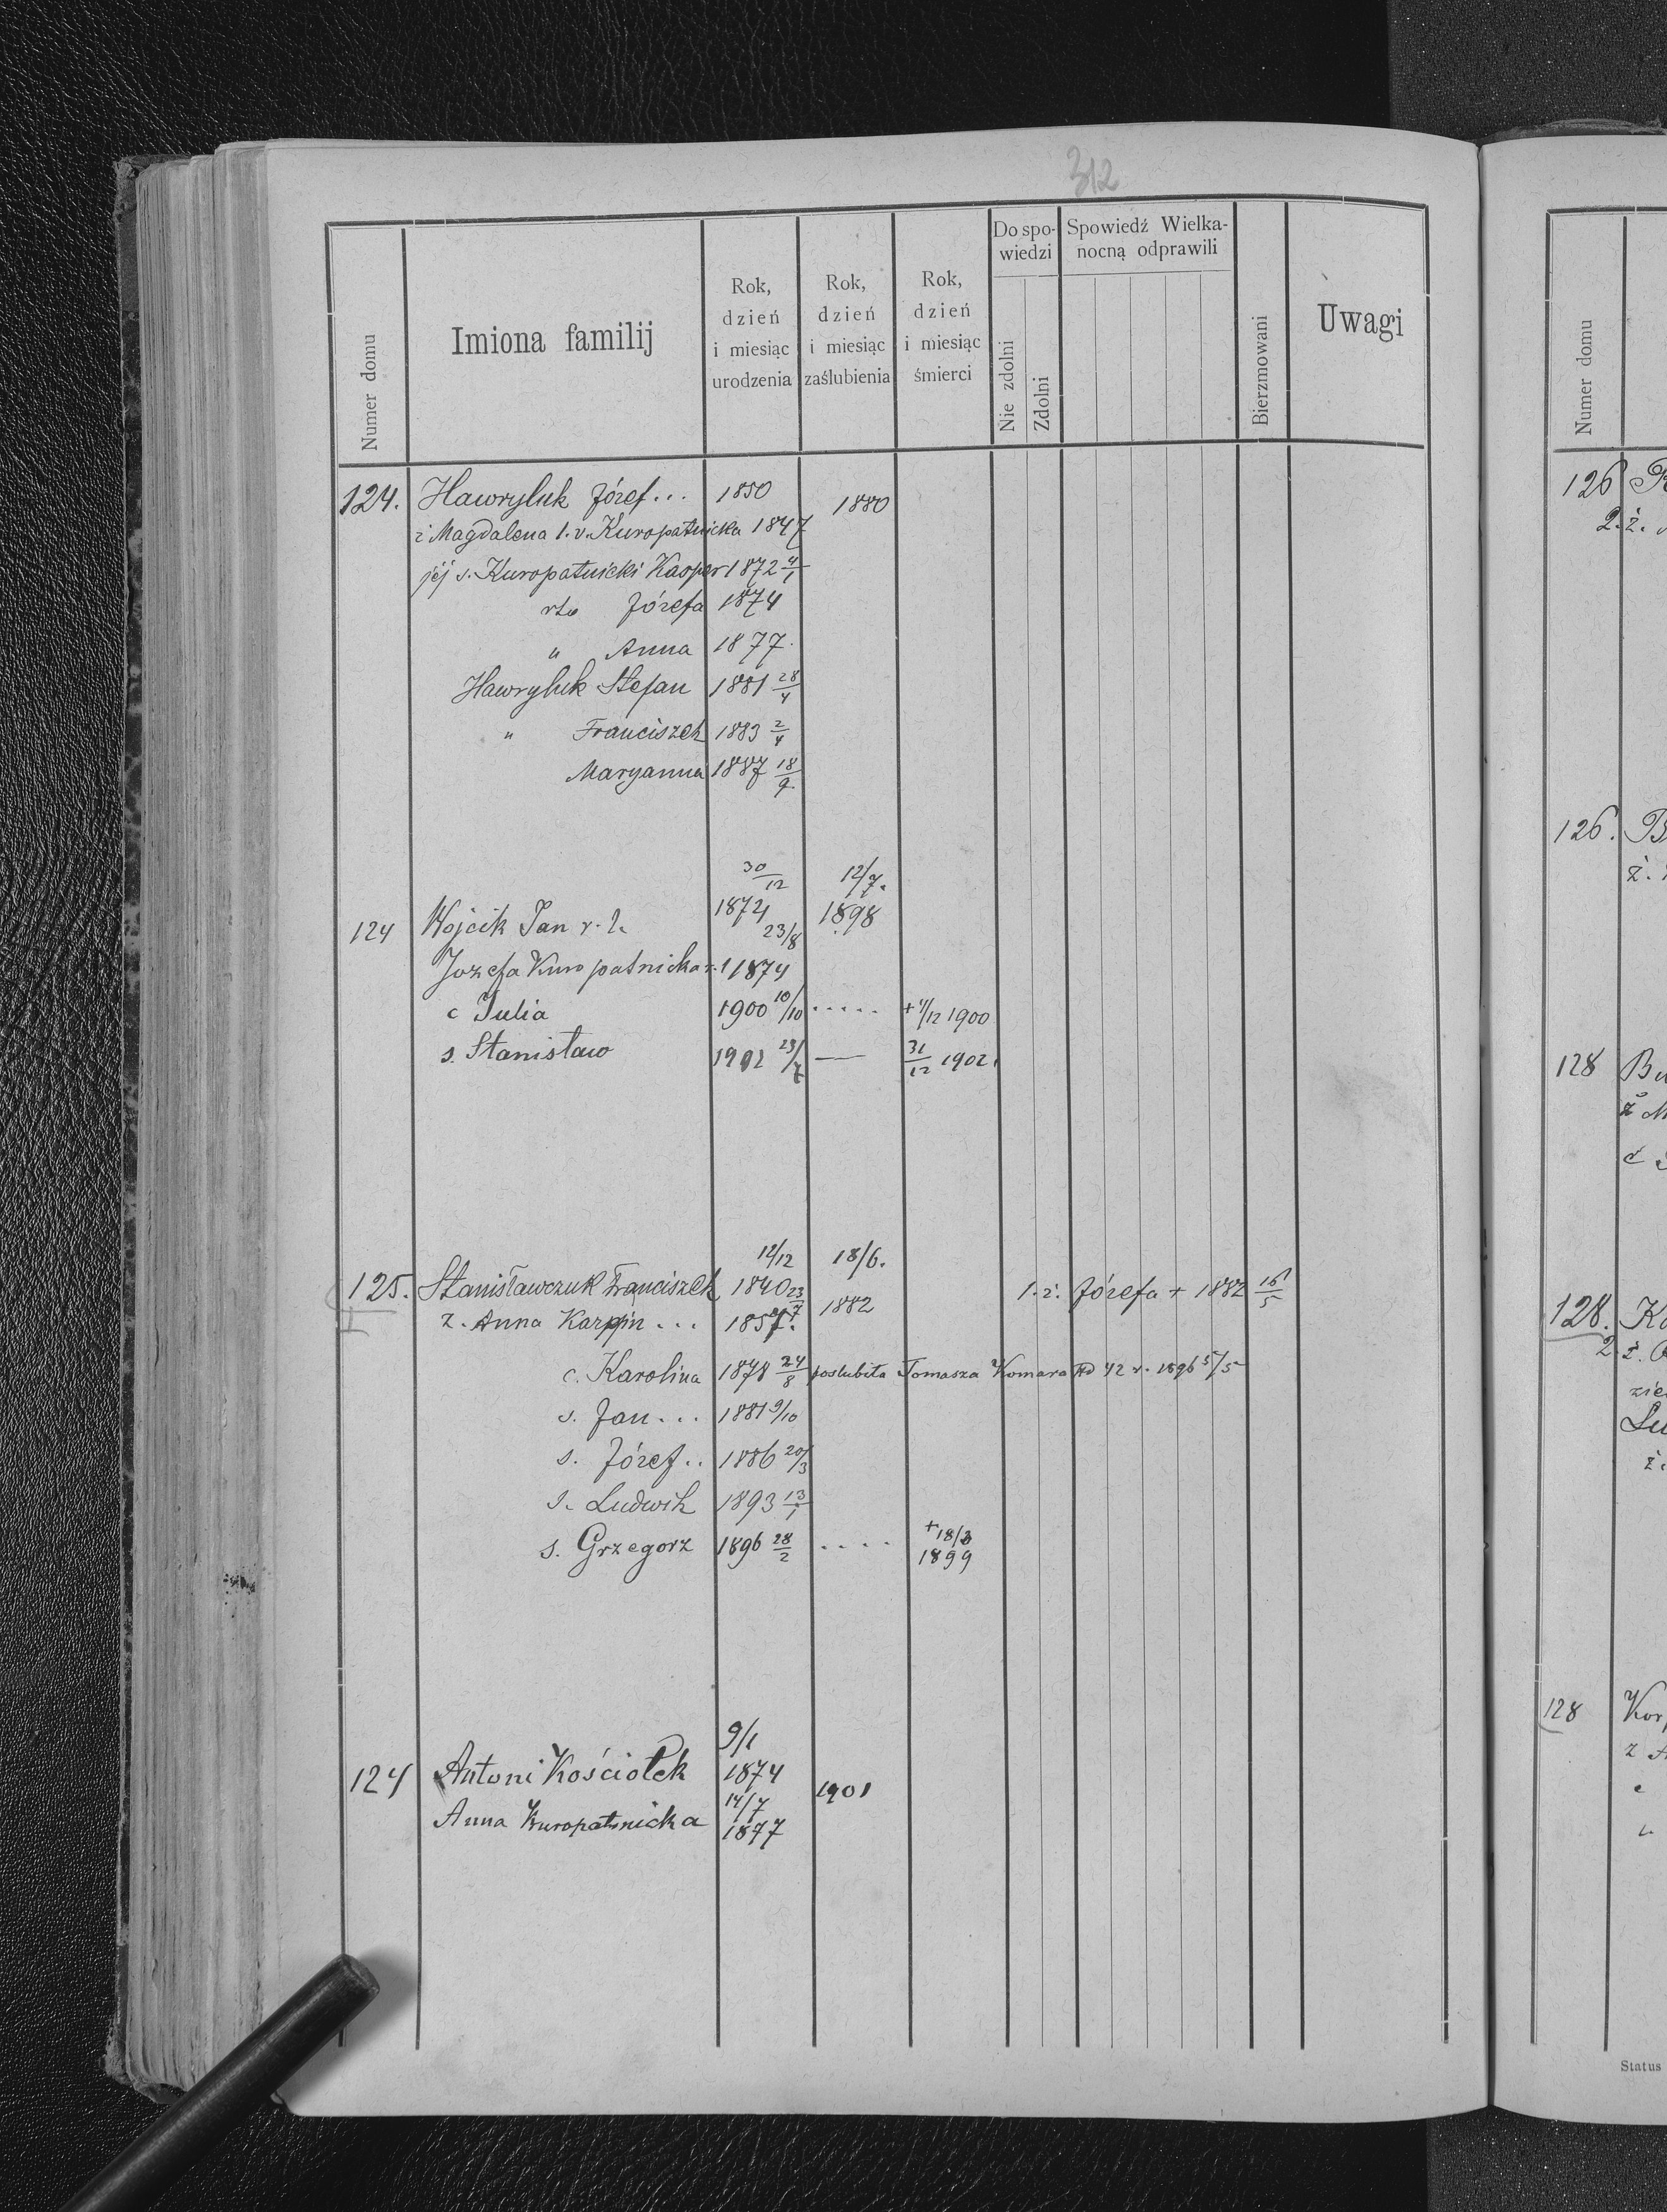 312
Numer domu
Imiona familij
Rok, dzień i miesiąc urodzenia
Rok, dzień i miesiąc zaślubienia
Rok, dzień i miesiąc śmierci
Do spo-wiedzi
Nie zdolni
Zdolni
Spowiedź Wielka-nocną odprawili
Bierzmowani
Uwagi
124. Hawryluk Józef... 1850 1880
ż Magdalena 1. v. Kuropatnicka 1847
jéj s. Kuropatnicki Kasper 1872 4/1
Józefa 1874
" Anna 1877.
Hawryluk Stefan 1881 28/4
" Franciszek 1883 2/4
Maryanna 1887 18/9
30/12 12/7.
124 Wojcik Jan r. ł. 1874 1898
23/8
Jozefa Kuropatnicka 1874
c Julia 1900 10/10 ..... + 4/12 1900
s. Stanisław 1902 23/7 — 31/12 1902.
12/12 18/6.
125. Stanisławczuk Franciszek 1840 1882 1. ż. Józefa + 1882 16/5
23/7
ż. Anna Karpin ... 1857.
c. Karolina 1878 24/8 poslubiła Tomasza Komara Nd 42 r. 1896 5/5
s. Jan... 1881 9/10
s. Józef.. 1886 20/3
s. Ludwik 1893 13/1
s. Grzegorz 1896 28/2 .... + 18/3 1899
9/1
124 Antoni Kościołek 1874 1901
14/7
Anna Kuropatnicka 1877
Numer domu
126
2. ż.
126. B
ż.
128 Bu
ż M
c
128. Ko
2 ż.
zie
Lu
ż.
128 Kor
ż A
c
Status